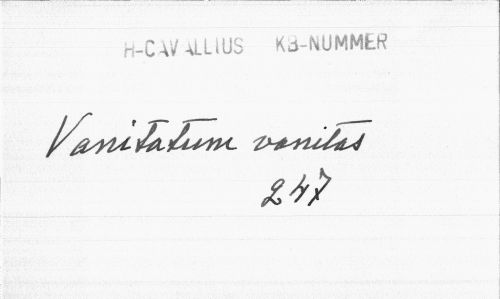 H-CAVALLIUS KB-NUMMER
Vanitatum vanitas
247